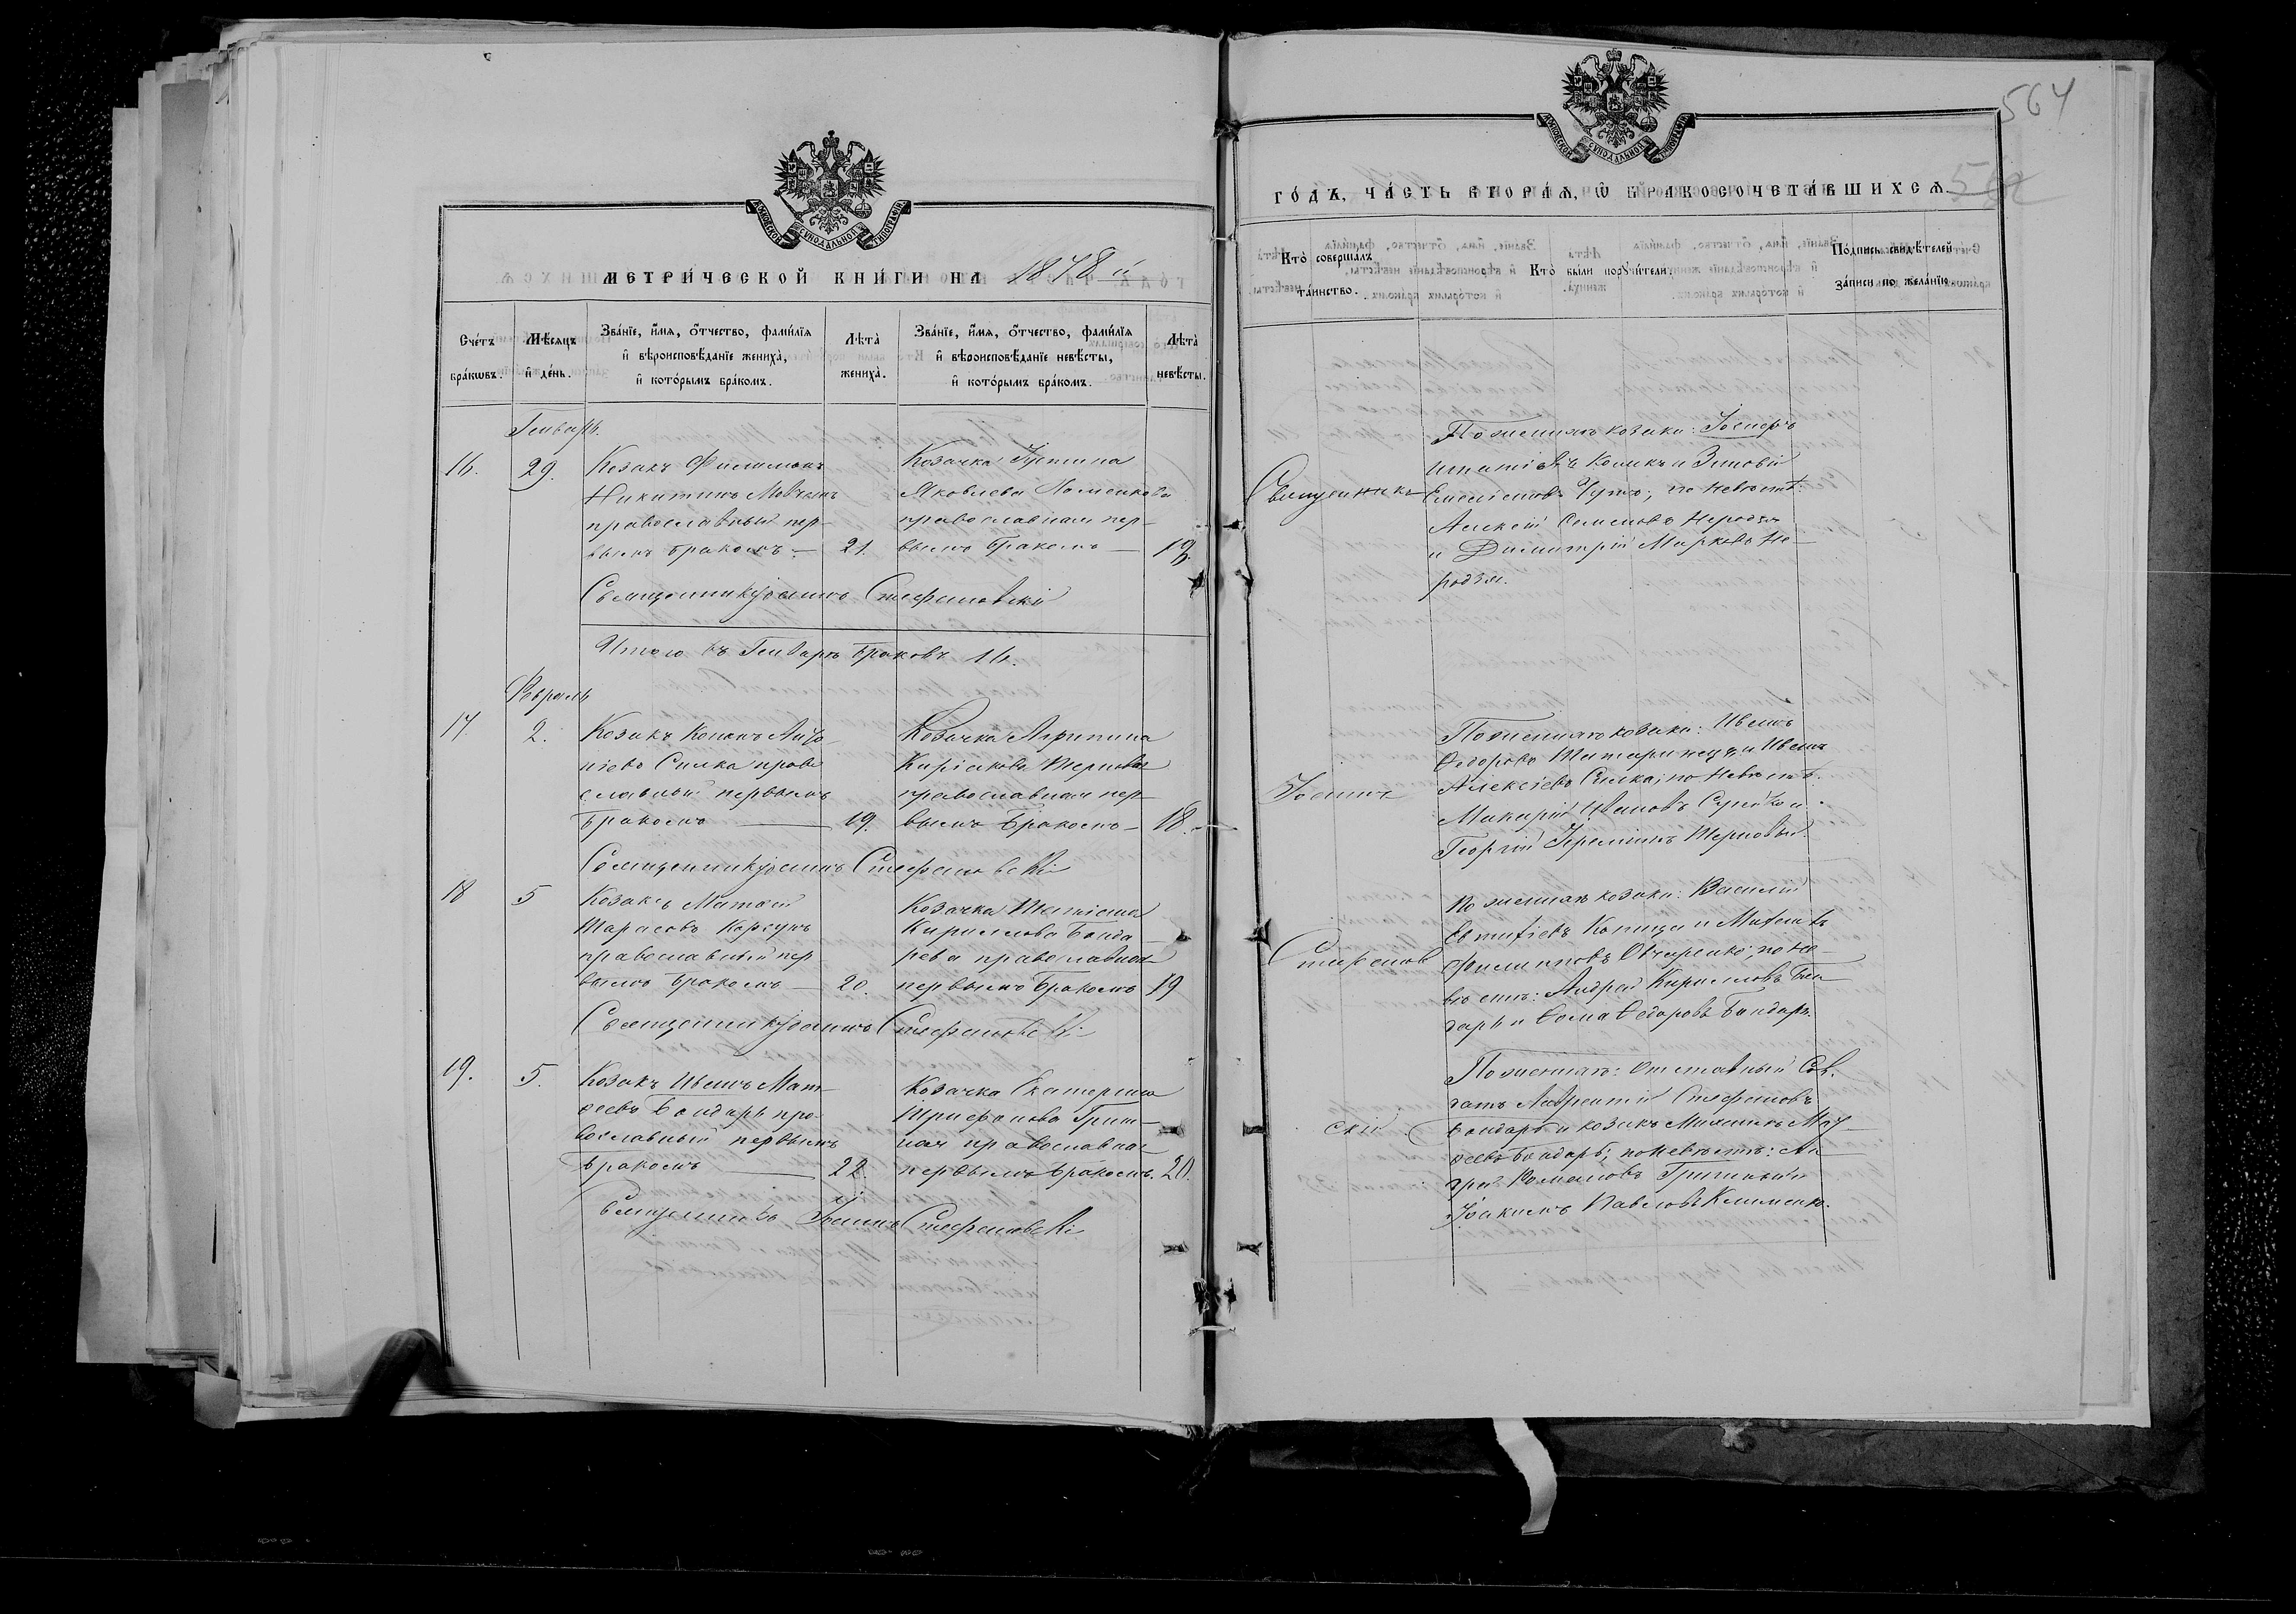 МОСКОВСКОЙ СѴНОДАЛЬНОЙ ТИПОГРАФІИ
МЕТРИ́ЧЕСКОЙ КНИ́ГИ НА 1878 й
Сче́тъ бра́кѡвъ.
Мѣ́сяцъ и҆ де́нь.
Зва́нїе, и҆́мя, ѻ҆́тчество, фами́лїя
и҆ вѣроисповѣ́данїе жениха̀,
и҆ кото́рымъ бра́комъ.
Лѣ́та̀ жениха̀.
Зва́нїе, и҆́мя, ѻ҆́тчество, фами́лїя
и҆ вѣроисповѣ́данїе невѣ́сты,
и҆ кото́рымъ бра́комъ.
Лѣ́та̀ невѣ́сты.
Генварь.
16. 29.
Козакъ Филимонъ
Никитинъ Мовчанъ
православный пер-
вымъ бракомъ. — 21.
Козачка Іустина
Яковлева
православная пер-
вымъ бракомъ — 19.
Священникъ Іоаннъ Стефановскій
Итого въ Генварѣ браковъ 16.
Февраль
17. 2.
Козакъ Кононъ
Силка право
славный первымъ
бракомъ — 19.
Козачка Агрипина
Киріакова Терновая
православная пер-
вымъ бракомъ — 18.
Священникъ Іоаннъ Стефановскій
18 5
Козакъ Матвей
Тарасовъ Корсунъ
православный пер-
вымъ бракомъ — 20.
Козачка Татіана
Кириллова Бонда-
рева православная
первымъ бракомъ 19
Священникъ Іоаннъ Стефановскій
19. 5.
Козакъ Иванъ Мат-
ѳеевъ Бондарь пра-
вославный первымъ
бракомъ — 22.
Козачка Екатерина
Трифонова Гриш-
ная православная
первымъ бракомъ. 20.
Священникъ Іоаннъ Стефановскій
564
МОСКОВСКОЙ СѴНОДАЛЬНОЙ ТИПОГРАФІИ
ГО́ДЪ, ЧА́СТЬ ВТОРА́Я, Ѡ҆ БРАКОСОЧЕТА́ВШИХСѦ.
Кто̀ соверша́лъ
та́инство.
Кто̀ бы́ли порꙋчи́тели.
По́дпись свидѣ́телей
за́писи по жела́нїю.
Священникъ
Іоаннъ
Стефанов
скій
По женихѣ козаки: Іосифъ
Игнатіевъ и Зиновій
Емеліановъ Чупъ; по невѣстѣ:
Алексій Семеновъ Неродзя
и Димитрій Марковъ Не-
родзя.
По женихѣ козаки: Иванъ
Ѳедоровъ и Иванъ
Алексіевъ Силка; по невѣстѣ:
Макарій Ивановъ и
Георгій Терновый.
По женихѣ козаки: Василій
Евтихіевъ Копица и Михаилъ
Филипповъ Овчаренко; по не-
вѣстѣ: Андрей Кирилловъ Бон-
дарь и Ѳома Ѳедоровъ Бондарь.
По женихѣ: отставный Сол-
датъ Лаврентій Стефановъ
Бондарь и козакъ Михаилъ Мат-
ѳеевъ Бондарь; по невѣстѣ: Ан-
дрей Романовъ Гришный и
Іоакимъ Павловъ Клименко.